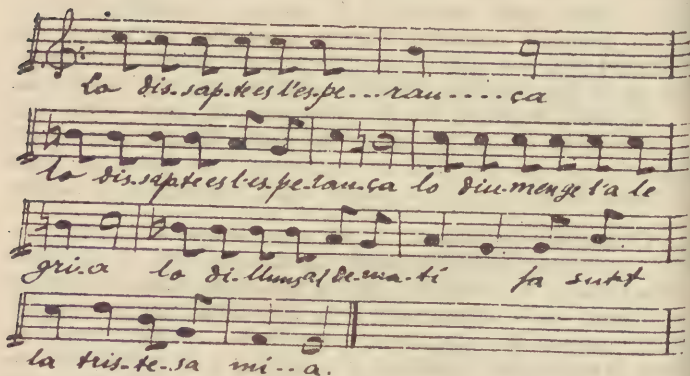 Lo dis.sap.te es l'es.pe...ran....ça
lo dis.sap.te es l'es.pe.ran.ça lo diu.men.ge l'a le
gri.a lo di.lluns al de.ma.ti fa
la tris.te.sa mi..a.